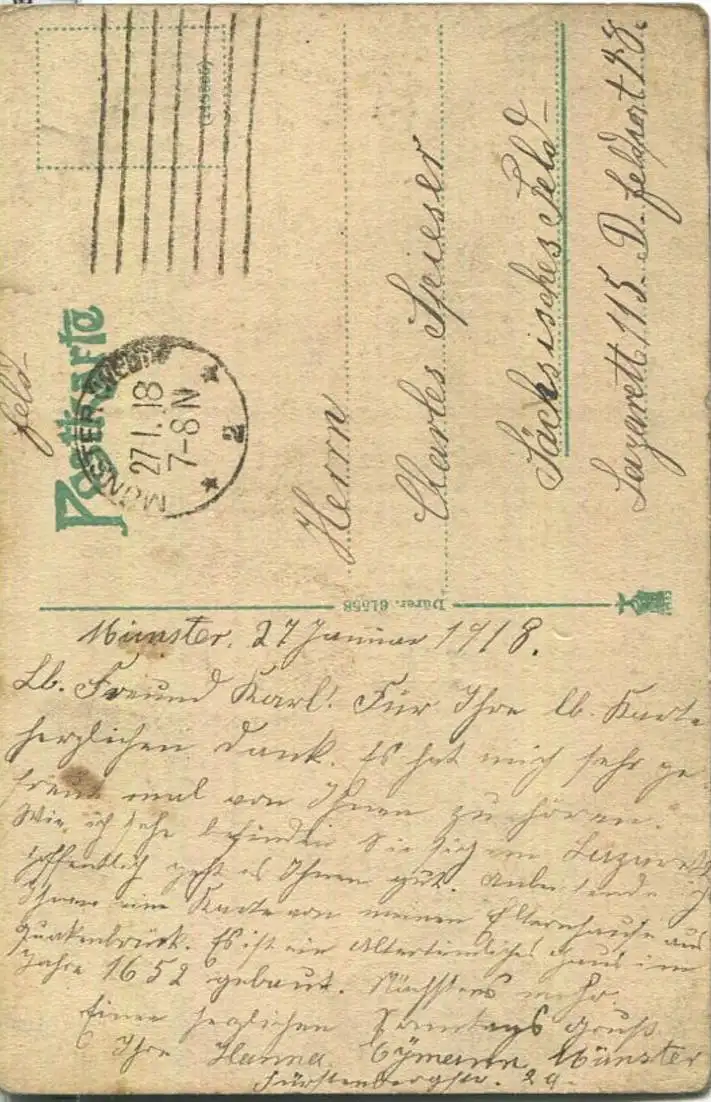 Feld-
Postkarte
(113506)
MÜNSTER (WESTF)
27.1.18
7-8N
2
Herrn
Charles Speiser
Sächsisches Feld-
Lazarett 115. D. Feldpost 18.
Dürer. 61558
Münster. 27 Januar 1918.
Lb. Freund Karl! Für Ihre lb. Karte
herzlichen Dank. Es hat mich sehr ge-
freut mal von Ihnen zu hören.
Wie ich sehe befinden Sie sich im Lazarett
hoffentlich geht es Ihnen gut. Anbei sende ich
Ihnen eine Karte von meinem Elternhause aus
Quakenbrück. Es ist ein Altertümliches Haus im
Jahre 1652 gebaut. Nächstens mehr.
Einen herzlichen Sonntags Gruß
Ihre Hanna Eymann Münster
Fürstenbergstr. 29.